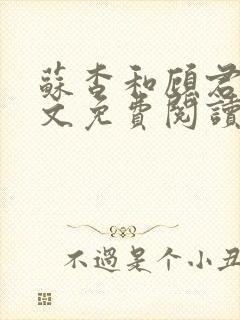 蘇杏和顧君
文免費閱讀
不過是个小丑